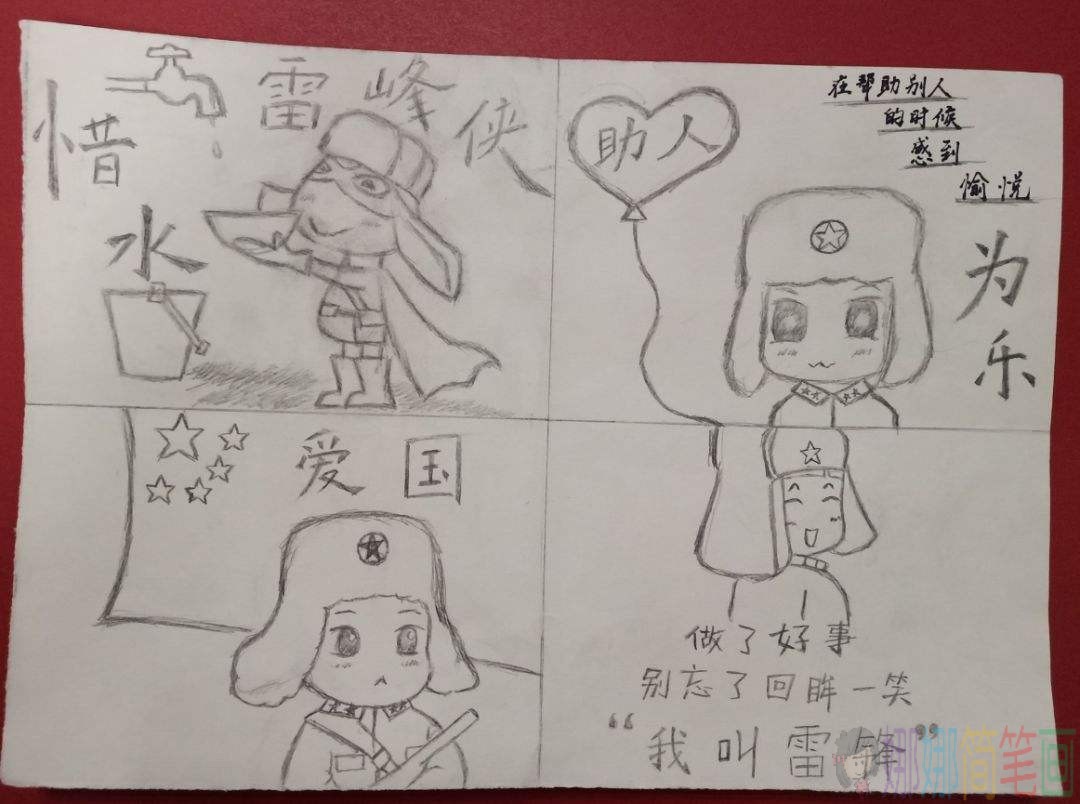 惜水
雷峰侠
助人
为乐
在帮助别人
的时候
感到
愉悦
爱国
做了好事
别忘了回眸一笑
“我叫雷锋”
娜娜简笔画